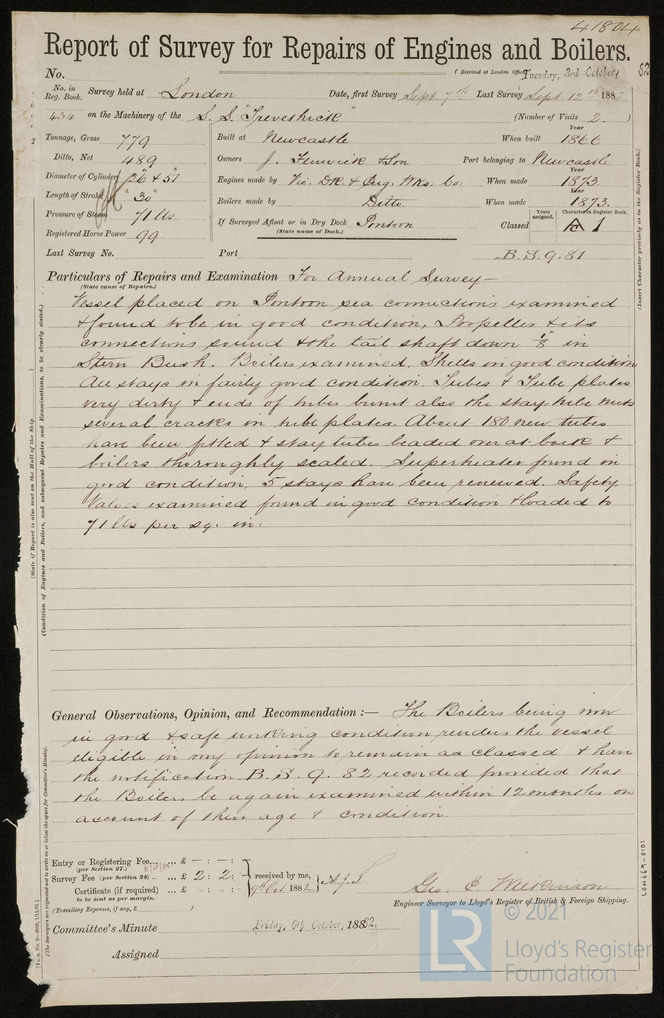 41804
Report of Survey for Repairs of Engines and Boilers.
No.
(Received at London Office Tuesday, 3rd October, 82
No. in Reg. Book. Survey held at London Date, first Survey Sept. 7th Last Survey Sept 12th 1882
434 on the Machinery of the S.S. "Trevethick" (Number of Visits 2.)
Tonnage, Gross 779 Built at Newcastle When built Year 1866
Ditto, Net 489 Owners J. Fenwick & Son Port belonging to Newcastle
Diameter of Cylinders 26 & 51 Engines made by Vic. Dk. & Eng. Wks. Co: When made Year 1873
Length of Stroke 30" Boilers made by Ditto When made 1873.
Pressure of Steam 71 lbs If Surveyed Afloat or in Dry Dock Pontoon Classed Years assigned. Character in Register Book. A 1
(State name of Dock.)
Registered Horse Power 99
Last Survey No. Port B.S. 9.81
Particulars of Repairs and Examination For Annual Survey-
(State cause of Repairs.)
Vessel placed on Pontoon sea connections examined
& found to be in good condition, Propeller & its
connections sound & the tail shaft down 1/8" in
Stern Bush. Boilers examined, Shells in good condition
All stays in fairly good condition. Tubes & Tube plates
very dirty & ends of tubes burnt also the stay tube nuts
several cracks in tube plates. About 180 new tubes
have been fitted & stay tubes beaded over at back &
boilers thoroughly scaled. Superheater found in
good condition, 5 stays have been renewed. Safety
Valves examined found in good condition & loaded to
71 lbs per sq. in:
General Observations, Opinion, and Recommendation :— The Boilers being now
in good & safe working condition renders the vessel
eligible in my opinion to remain as classed & have
the notification B.S. 9.82 recorded provided that
the Boilers be again examined within 12 months on
account of their age & condition.
Entry or Registering Fee... ... £ — : — : —
(per Section 27.)
Survey Fee (per Section 28) ... £ 2 : 2 : — received by me,
Certificate (if required) ... £ - : - : - 9th Oct 1882
to be sent as per margin.
(Travelling Expenses, if any, £ )
Geo. C. Wilkinson
Engineer Surveyor to Lloyd's Register of British & Foreign Shipping.
Committee's Minute Friday, 6th October, 1882.
Assigned
(State if Report is also sent on the Hull of the Ship
(Condition of Engines and Boilers, and subsequent Repairs and Examinations, to be clearly stated.)
(The Surveyors are requested not to write on or below the space for Committee's Minute.
(Insert Character precisely as in the Register Book.)
LON669-0101
LR
© 2021
Lloyd's Register
Foundation